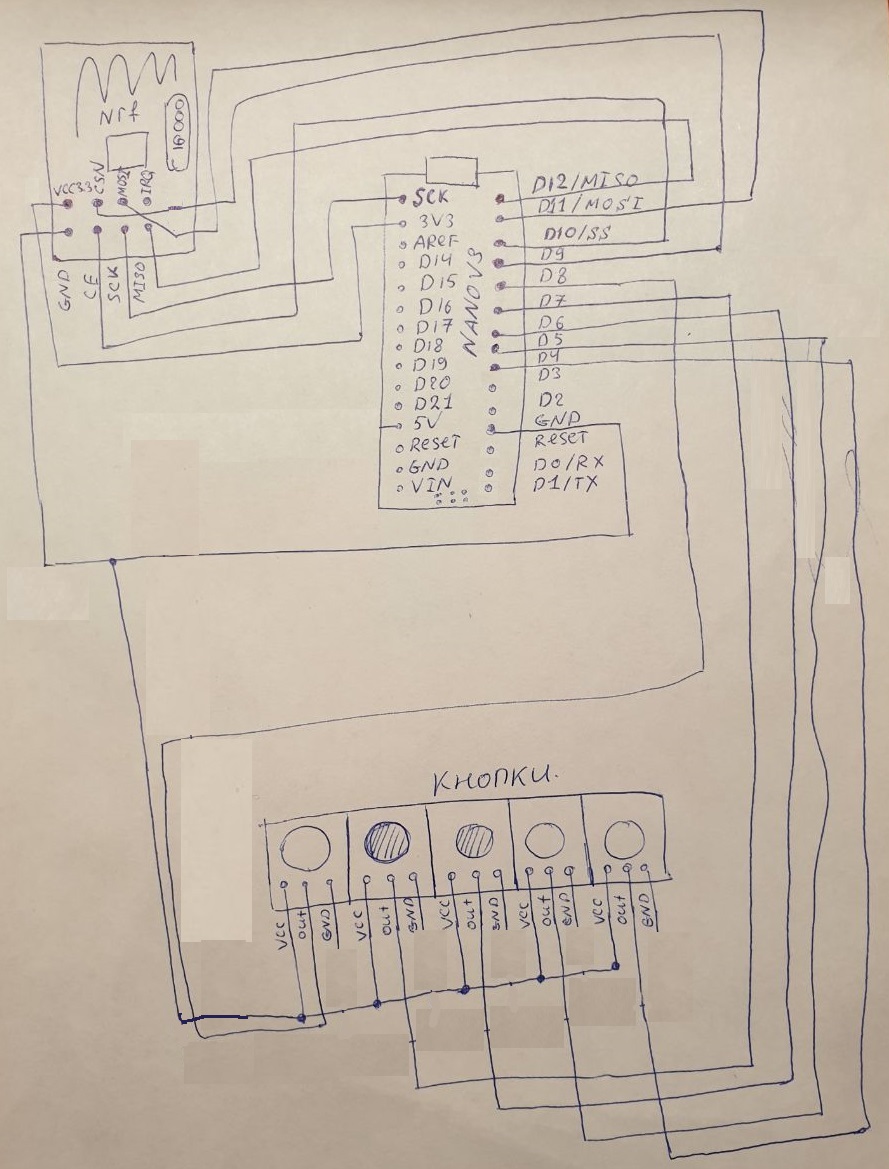 Nrf
16000
VCC33 CSN MOSI IRQ
GND CE SCK MISO
NANO V3
SCK
3V3
AREF
D14
D15
D16
D17
D18
D19
D20
D21
5V
RESET
GND
VIN
D12/MISO
D11/MOSI
D10/SS
D9
D8
D7
D6
D5
D4
D3
D2
GND
RESET
D0/RX
D1/TX
КНОПКИ.
VCC out GND VCC out GND VCC out GND VCC out GND VCC out GND